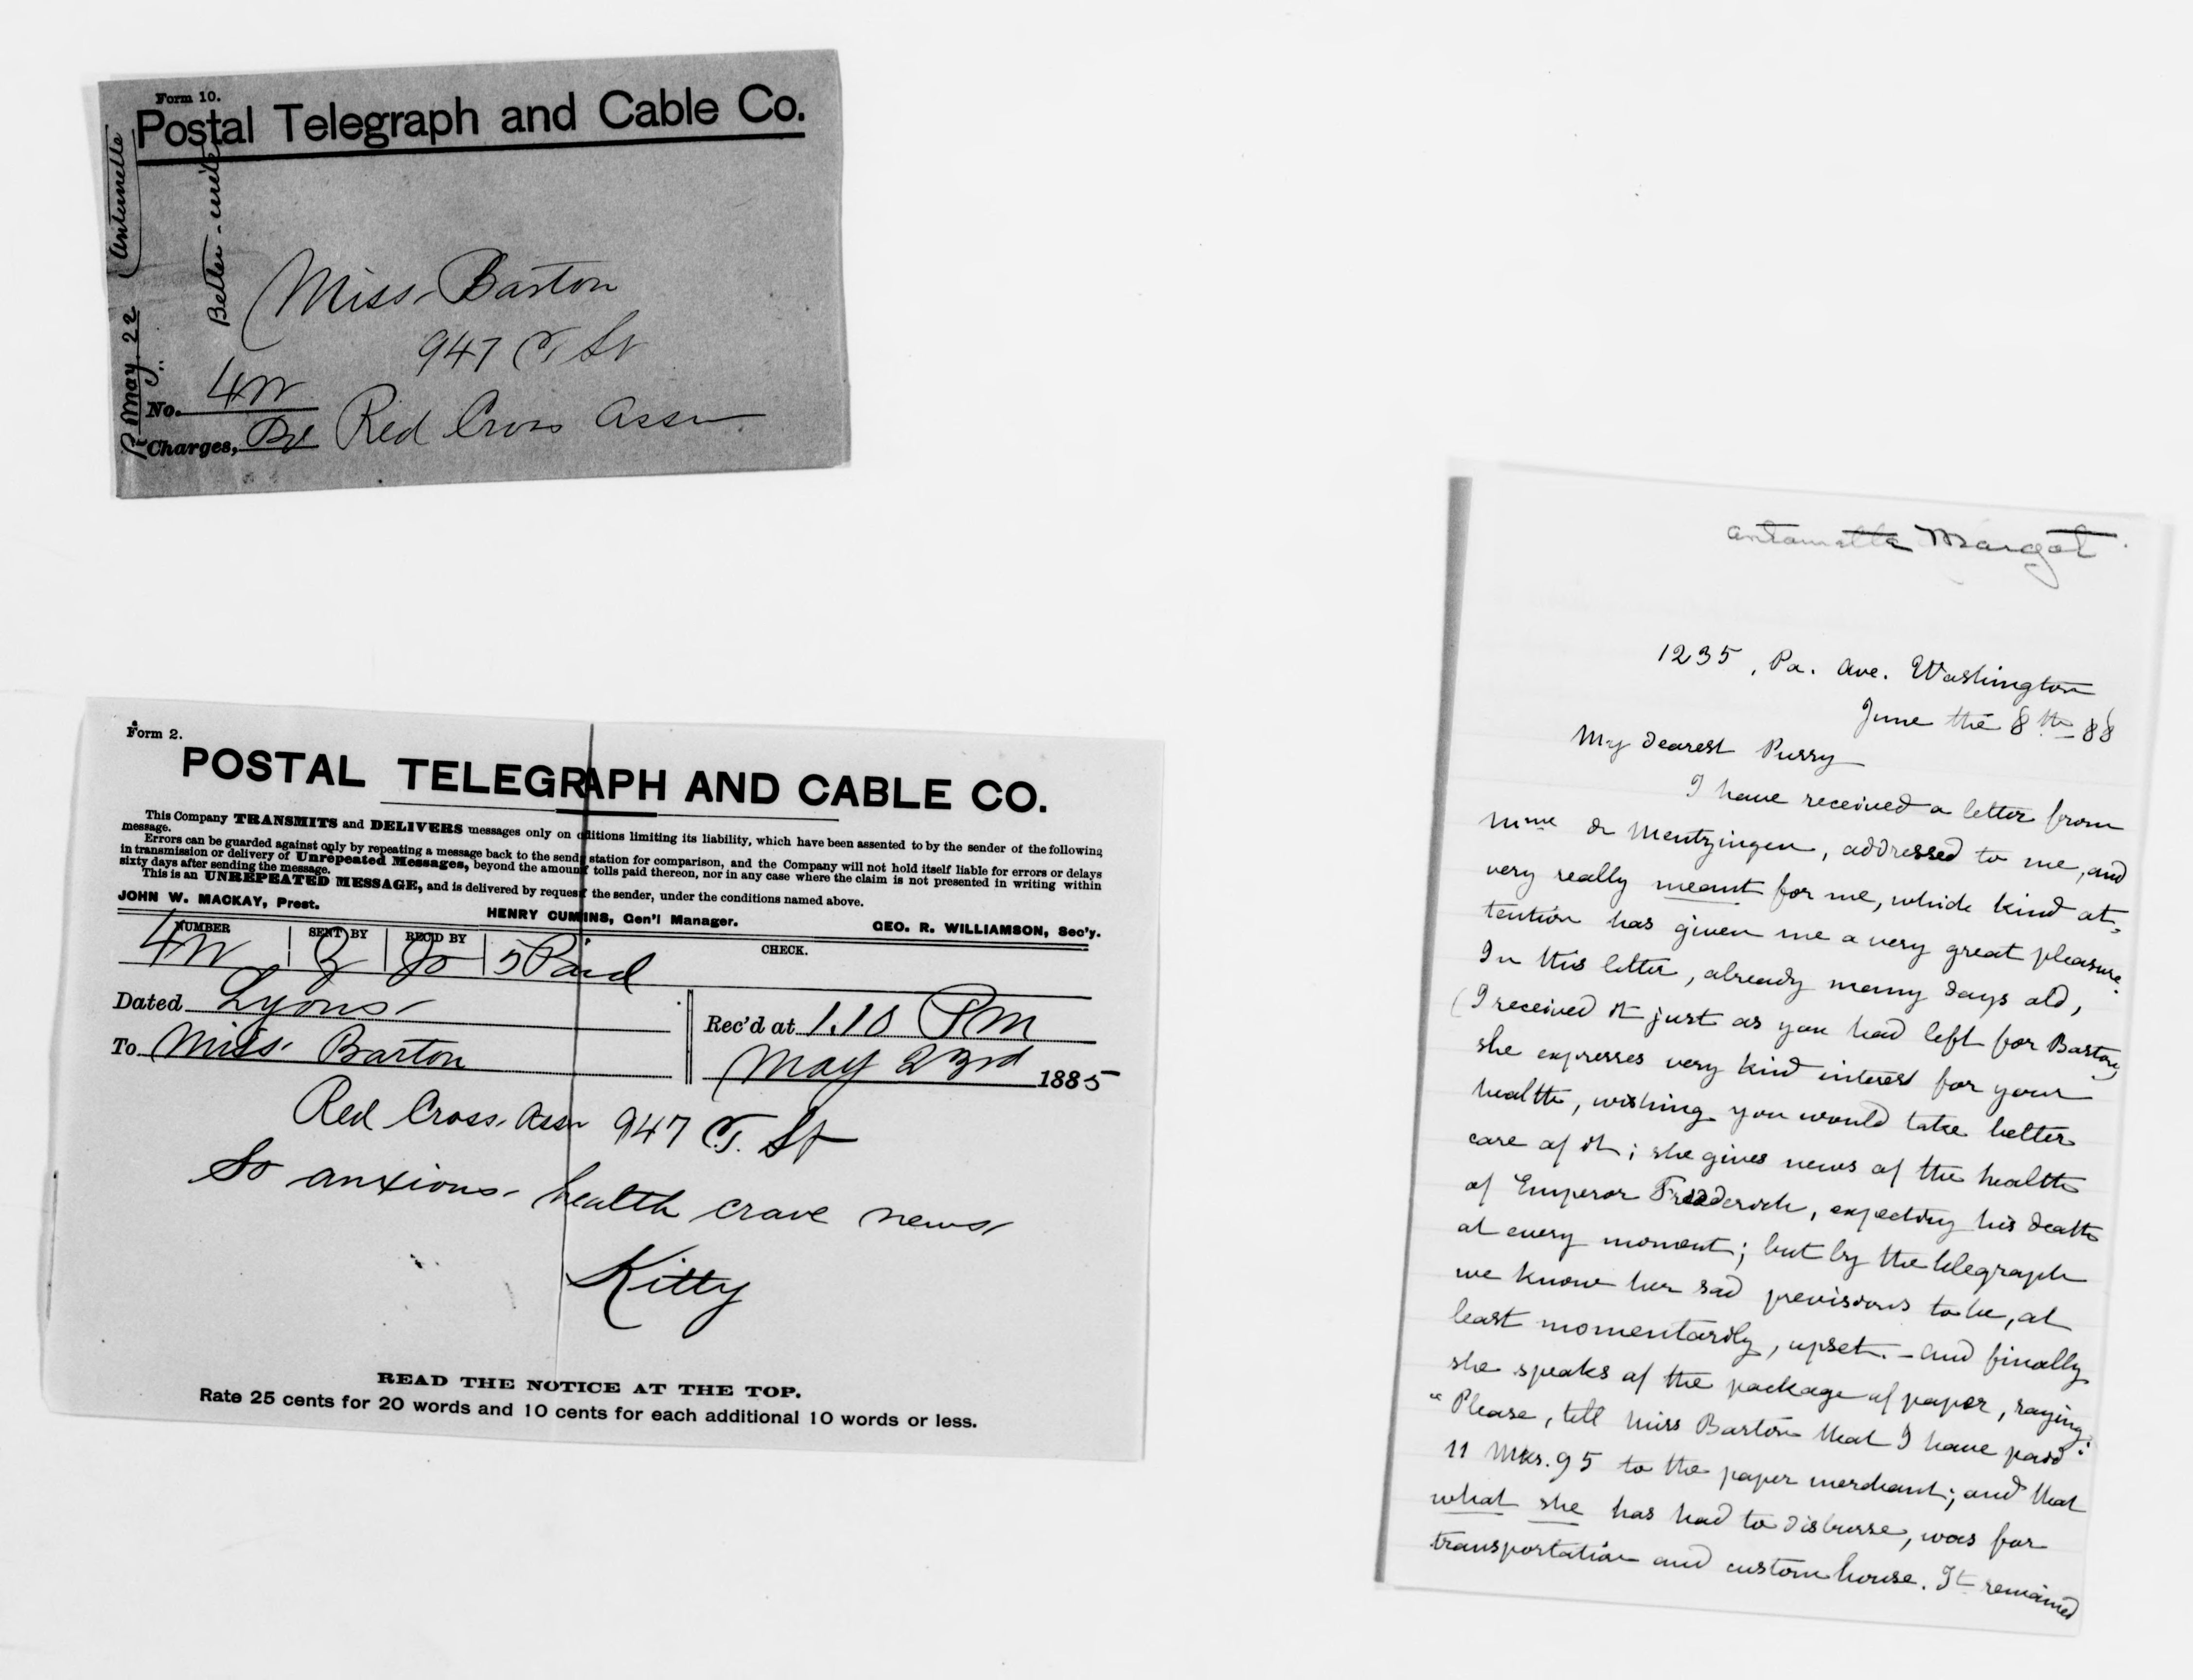 Form 10.
Postal Telegraph and Cable Co.
Antoinette
May 22
Better - write
Miss Barton
947 T St
No. 4W
Charges, Red Cross Assn
Form 2.
POSTAL TELEGRAPH AND CABLE CO.
This Company TRANSMITS and DELIVERS messages only on ditions limiting its liability, which have been assented to by the sender of the following
message.
Errors can be guarded against only by repeating a message back to the send station for comparison, and the Company will not hold itself liable for errors or delays
in transmission or delivery of Unrepeated Messages, beyond the amount tolls paid thereon, nor in any case where the claim is not presented in writing within
sixty days after sending the message.
This is an UNREPEATED MESSAGE, and is delivered by request the sender, under the conditions named above.
JOHN W. MACKAY, Prest. HENRY CUMINS, Gen'l Manager. GEO. R. WILLIAMSON, Sec'y.
NUMBER SENT BY REC'D BY CHECK.
4W 5 Paid
Dated Lyons Rec'd at 1.10 PM
To Miss Barton May 23rd 1885
Red Cross Assn 947 T. St
So anxious health crave news
Kitty
READ THE NOTICE AT THE TOP.
Rate 25 cents for 20 words and 10 cents for each additional 10 words or less.
Antoinette Margot
1235, Pa. Ave. Washington
June the 8th 88
My dearest Pussy
I have received a letter from
Mme de Mentzingen, addressed to me, and
very really meant for me, which kind at-
tention has given me a very great pleasure.
In this letter, already many days old,
(I received it just as you had left for Boston)
she expresses very kind interest for your
health, wishing you would take better
care of it; she gives news of the health
of Emperor Fredderich, expecting his death
at every moment; but by the telegraph
we know her sad previsions to be, at
least momentarily, upset. - and finally
she speaks of the package of paper, saying:
"Please, tell Miss Barton that I have paid
11 Mks. 95 to the paper merchant; and that
what she has had to disburse, was for
transportation and custom house. It remained